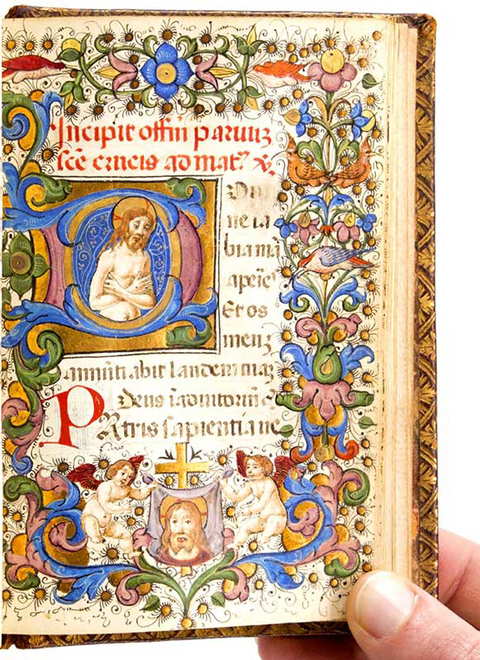 Incipit offm paruuz
sce crucis ad mat' x.
DOmi
ne la
bia mā
apeies
Et os
meuz
annūtiabit laudem tuaz
Deus ī adiutoriū
PAtris sapientia ue